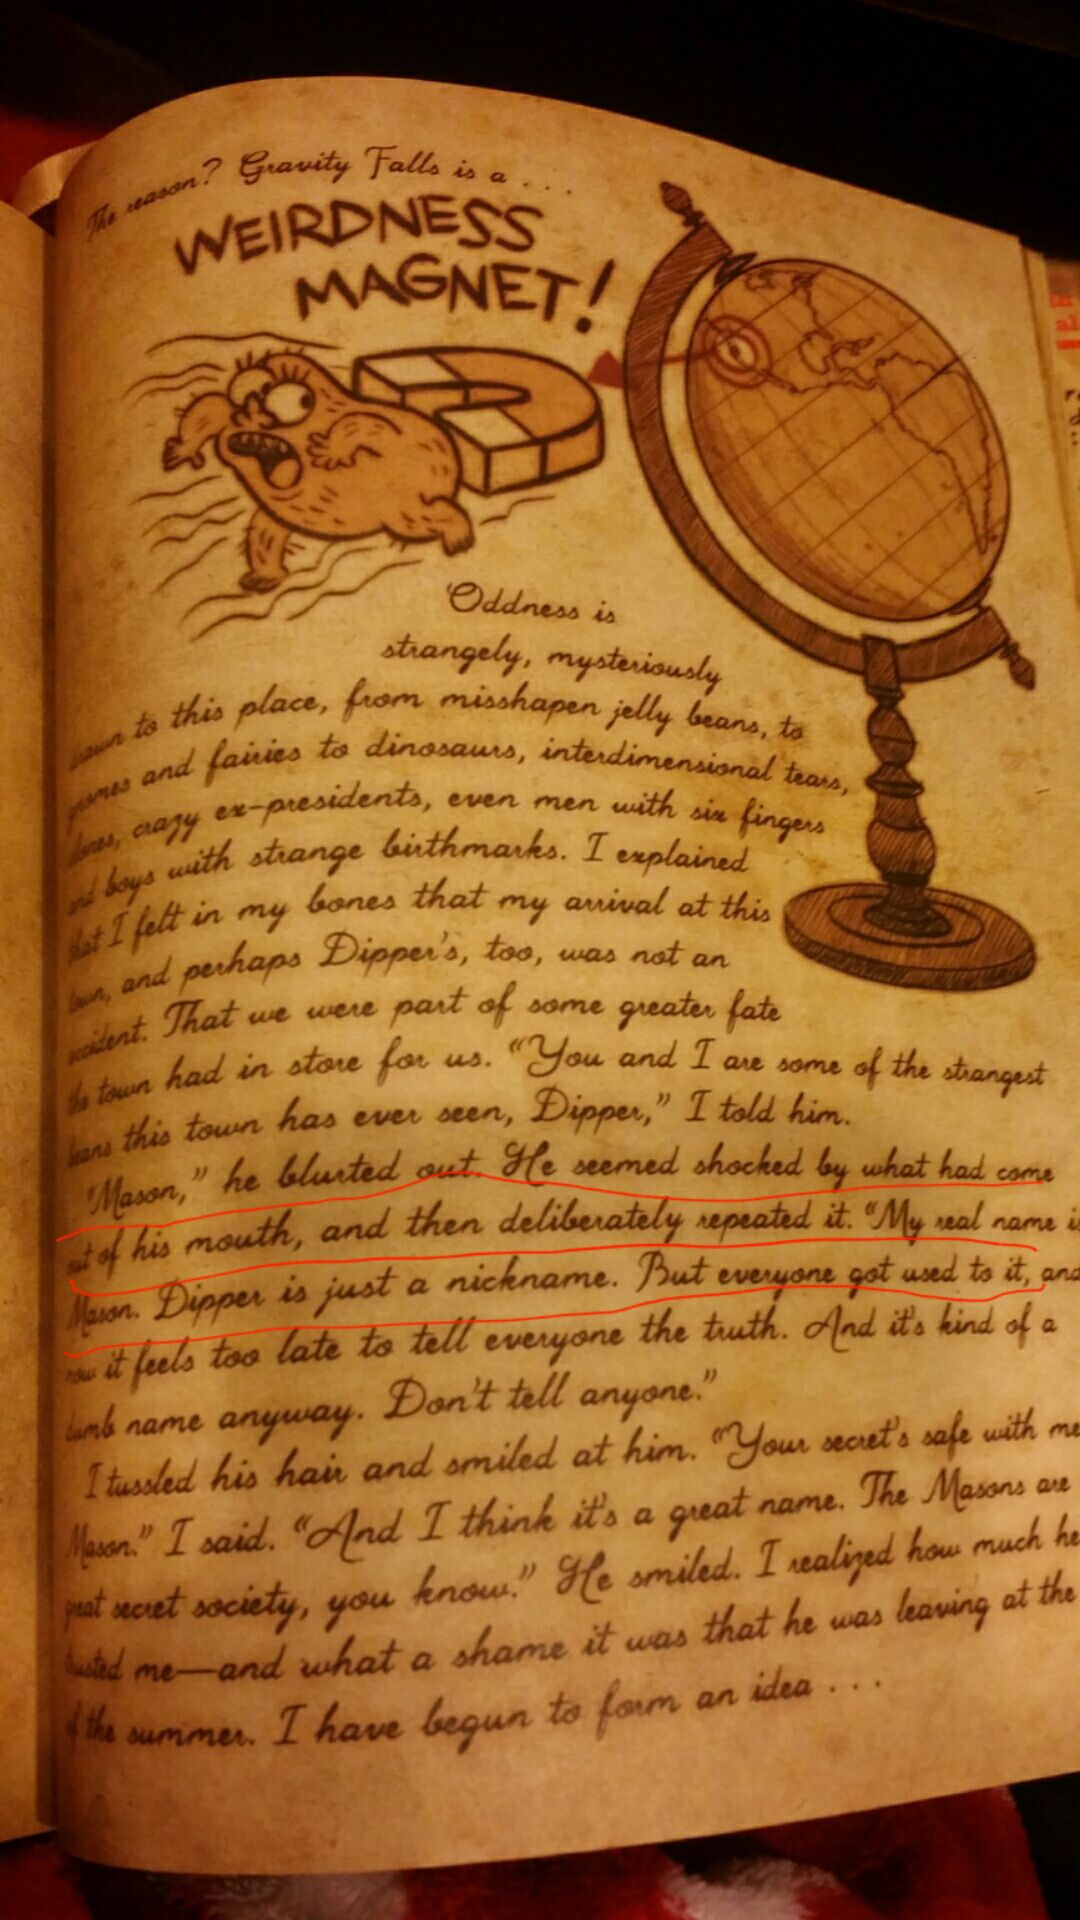 The reason? Gravity Falls is a . . .
WEIRDNESS
MAGNET!
'Oddness is
strangely, mysteriously
drawn to this place, from misshapen jelly beans, to
gnomes and fairies to dinosaurs, interdimensional tears,
clones, crazy ex-presidents, even men with six fingers
and boys with strange birthmarks. I explained
that I felt in my bones that my arrival at this
town, and perhaps Dipper's, too, was not an
accident. That we were part of some greater fate
the town had in store for us. "You and I are some of the strangest
beans this town has ever seen, Dipper," I told him.
"Mason," he blurted out. He seemed shocked by what had come
out of his mouth, and then deliberately repeated it. "My real name is
Mason. Dipper is just a nickname. But everyone got used to it, and
now it feels too late to tell everyone the truth. And it's kind of a
dumb name anyway. Don't tell anyone."
I tussled his hair and smiled at him. "Your secret's safe with me
Mason." I said. "And I think it's a great name. The Masons are
great secret society, you know." He smiled. I realized how much he
trusted me—and what a shame it was that he was leaving at the
of the summer. I have begun to form an idea . . .